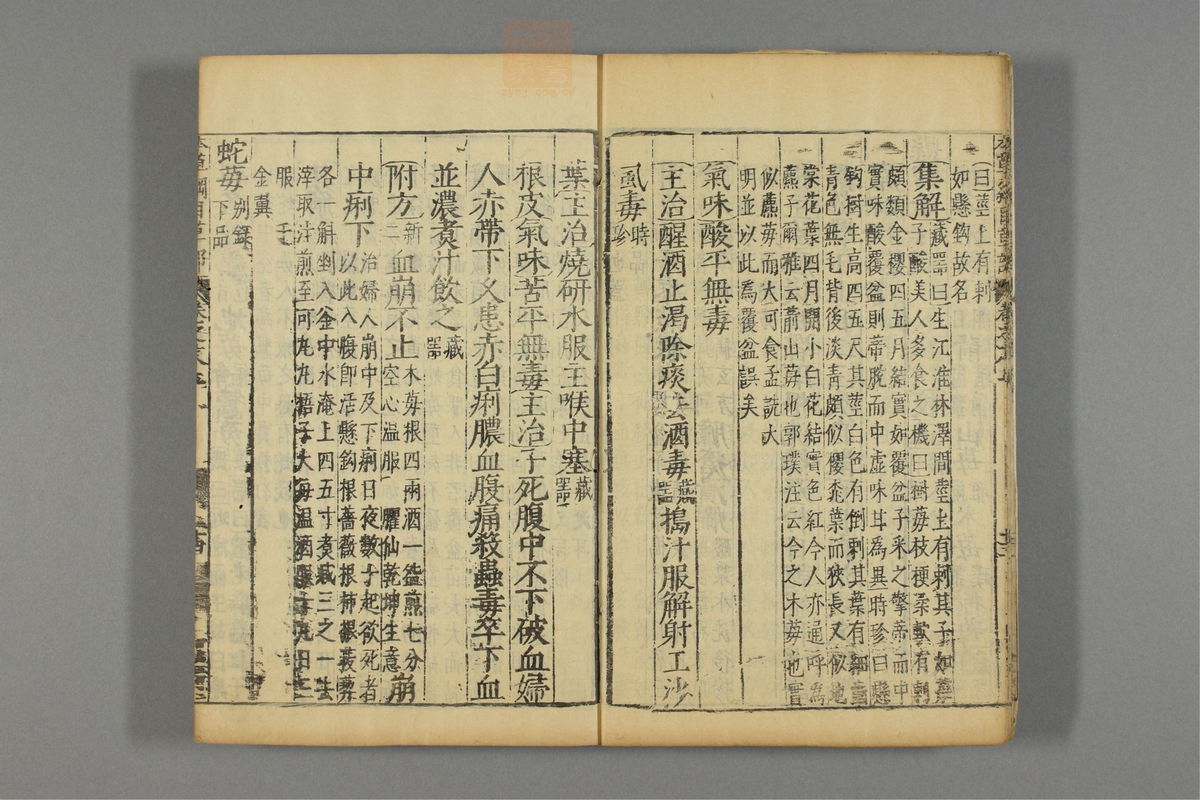 曰莖上有刺
如懸鈎故名
集解藏器曰生江淮林澤間莖上有刺其子如
子酸美人多食之機曰樹莓枝梗柔軟有刺
頗類金櫻四五月結實如覆盆子采之擎蒂而中
實味酸覆盆則蒂脫而中虛味甘為異時珍曰懸
鈎樹生高四五尺其莖白色有倒刺其葉有細
青色無毛背後淡青頗似櫻桃葉而狹長又似地
棠花葉四月開小白花結實色紅今人亦通呼為
藨子爾雅云葥山莓也郭璞注云今之木莓也實
似藨莓而大可食孟詵大
明並以此為覆盆誤矣
氣味酸平無毒
主治醒酒止渴除痰去酒毒藏器搗汁服解射工沙
虱毒時珍
葉主治燒研水服主喉中塞藏器
根皮氣味苦平無毒主治子死腹中不下破血婦
人赤帶下久患赤白痢膿血腹痛殺蟲毒卒下血
並濃煮汁飲之藏器
附方新二血崩不止木莓根四兩酒一盌煎七分
空心溫服臞仙乾坤生意崩
中痢下治婦人崩中及下痢日夜數十起欲死者
以此入腹即活懸鈎根薔薇根柿根菝葜
各一斛剉入釜中水淹上四五寸煮减三之一去
滓取汁煎至可丸丸梧子大每溫酒服十丸日三
服
金冀
蛇莓别錄下品